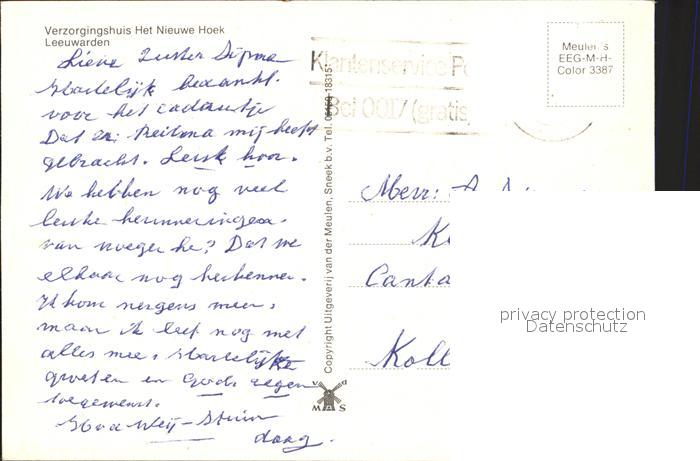 Verzorgingshuis Het Nieuwe Hoek
Leeuwarden
Lieve Zuster Dijkma
Hartelijk bedankt.
voor het cadeautje
Dat zr. Reitsma mij heeft
gebracht. Leuk hoor.
We hebben nog veel
leuke herinneringen.
van vroeger he? Dat we
elkaar nog herkennen.
Ik kom nergens meer,
maar ik leef nog met
alles mee. Hartelijke
groeten en Gods zegen
toegewenst.
daag.
Copyright Uitgeverij van der Meulen, Sneek b.v. Tel. 183151
v d
M A S
Klantenservice
Bel 0017 (gratis
Meulens
EEG-M-H-
Color 3387
Mevr:
Canta
Koll
privacy protection
Datenschutz